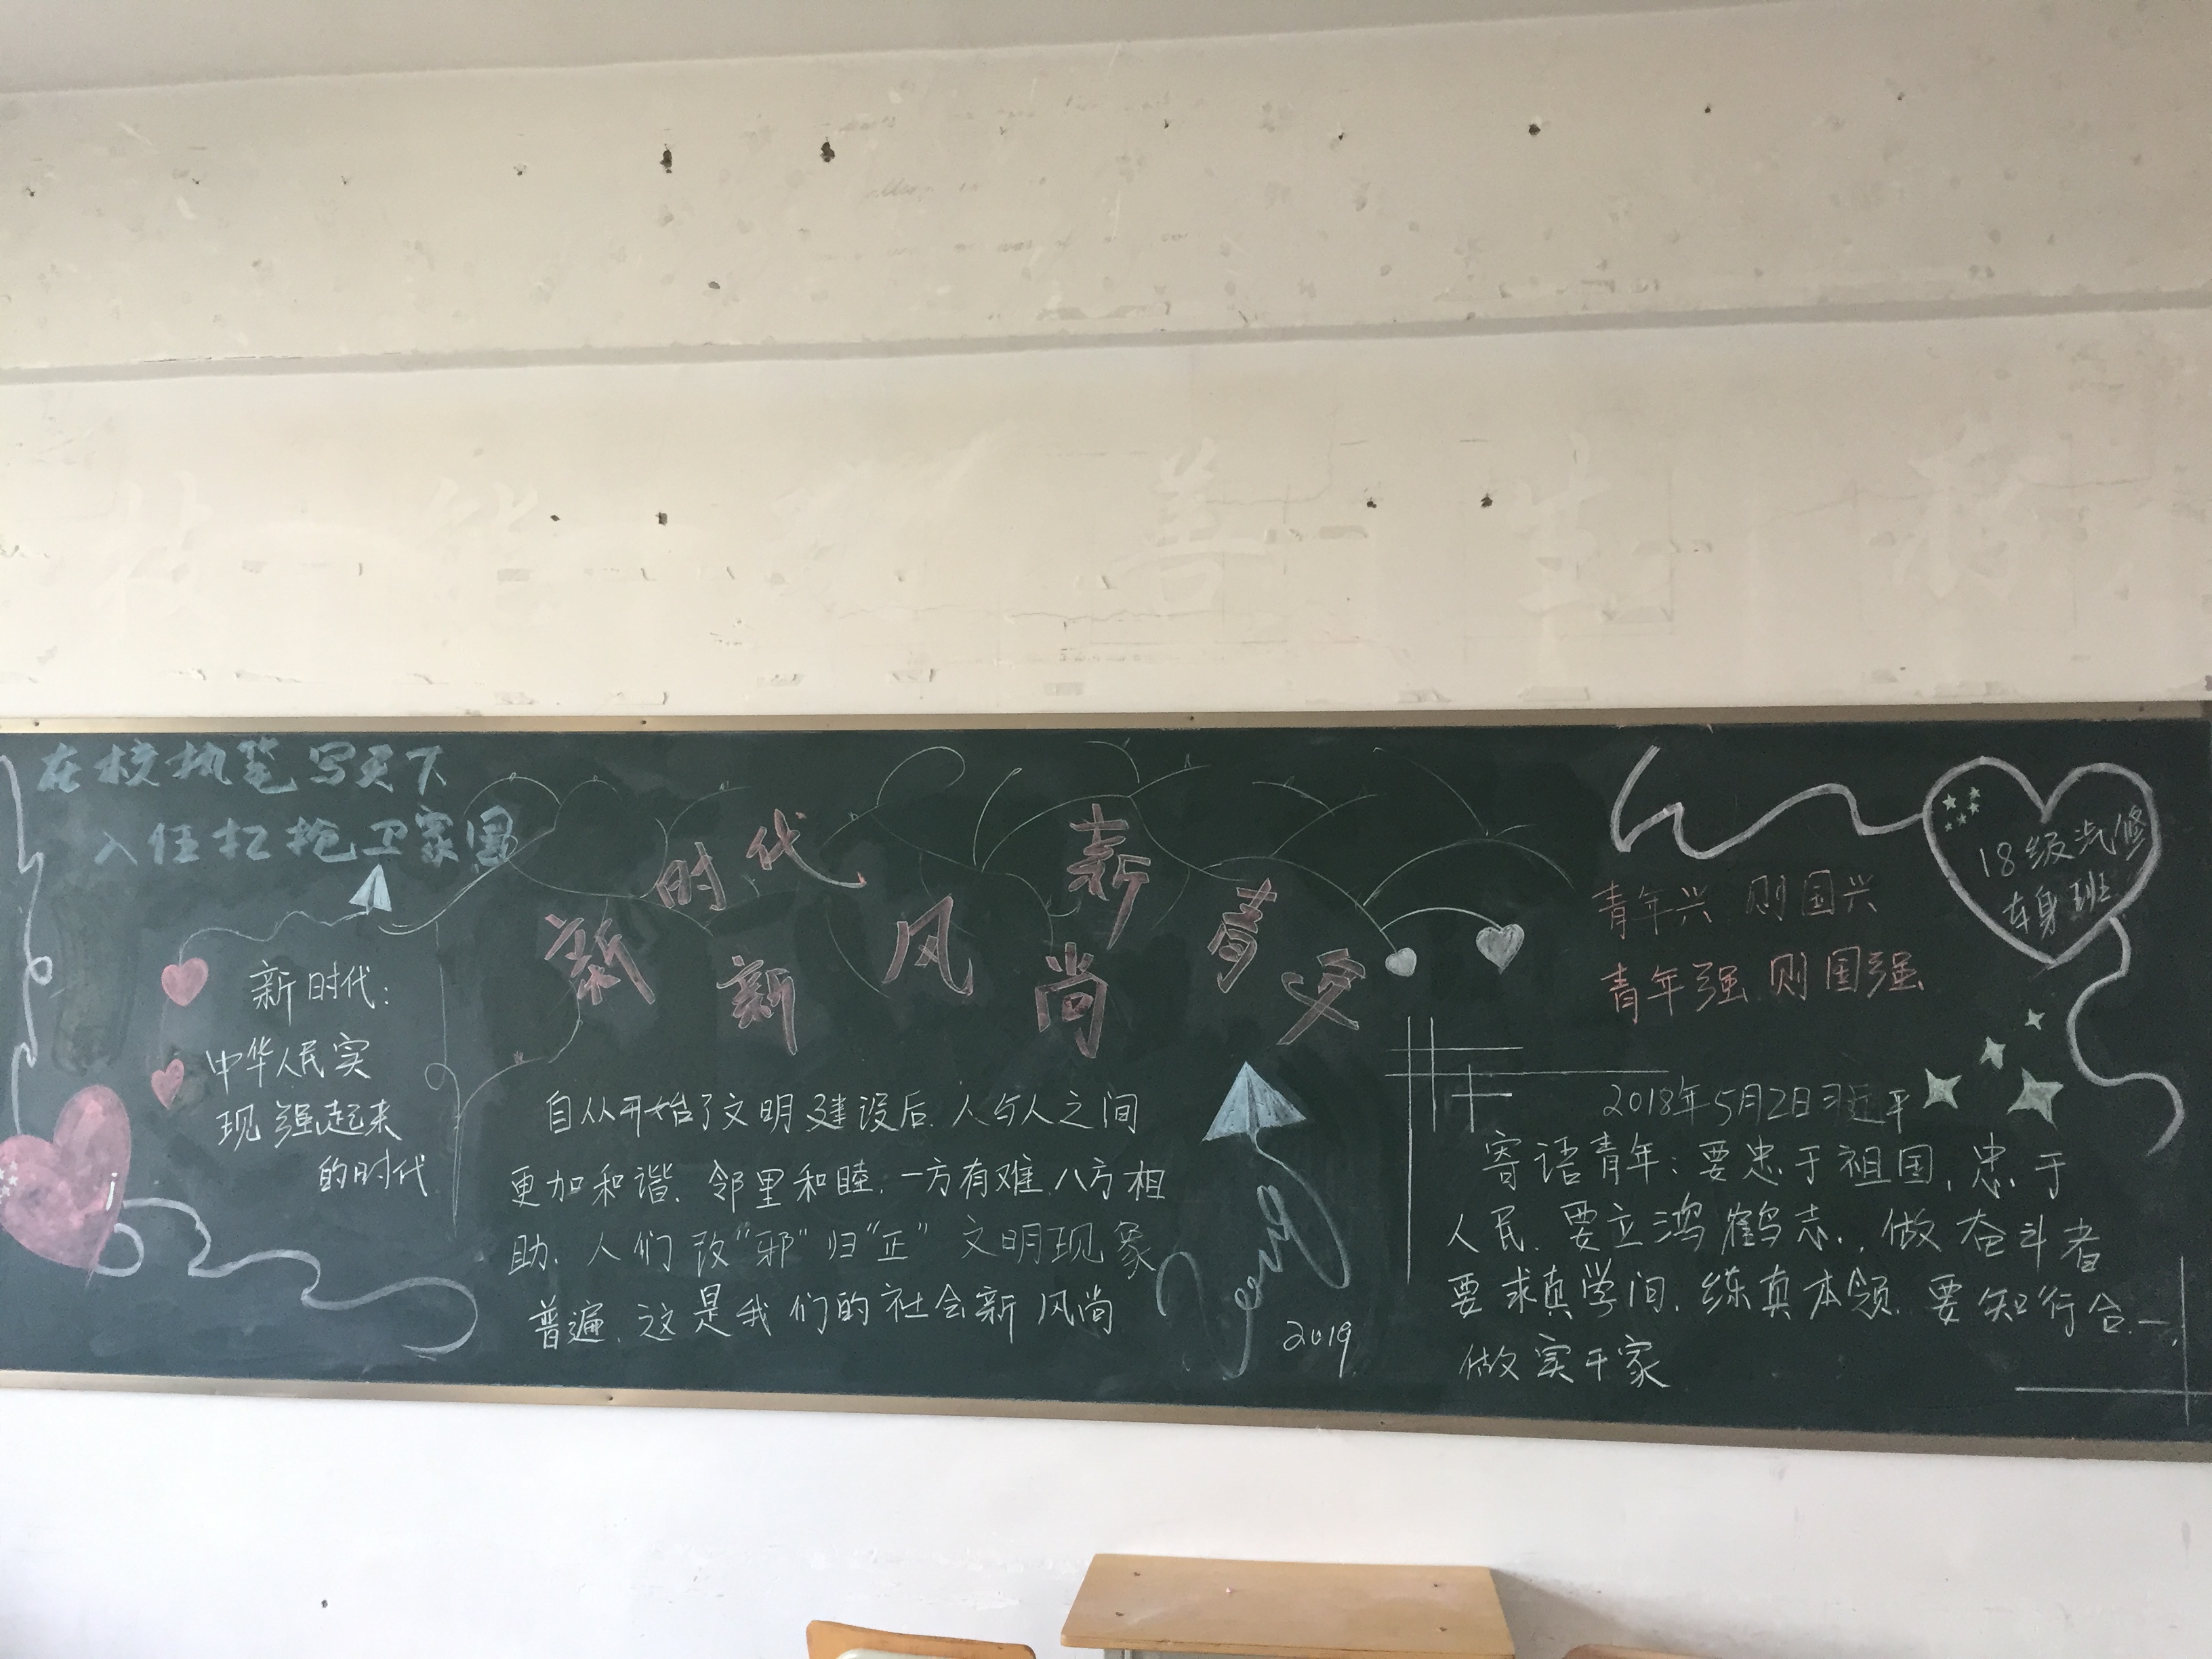 在校执笔写天下
入伍扛抢卫家国
新时代:
中华人民实
现强起来
的时代
新时代
新风尚
新青年
自从开始了文明建设后.人与人之间
更加和谐.邻里和睦.一方有难.八方相
助.人们改"邪"归"正" 文明现象
普遍.这是我们的社会新风尚
2019
18级汽修
车身班
青年兴 则国兴
青年强 则国强
2018年5月2日习近平
寄语青年:要忠于祖国,忠于
人民.要立鸿鹤志.,做奋斗者
要求真学问.练真本领.要知行合一,
做实干家